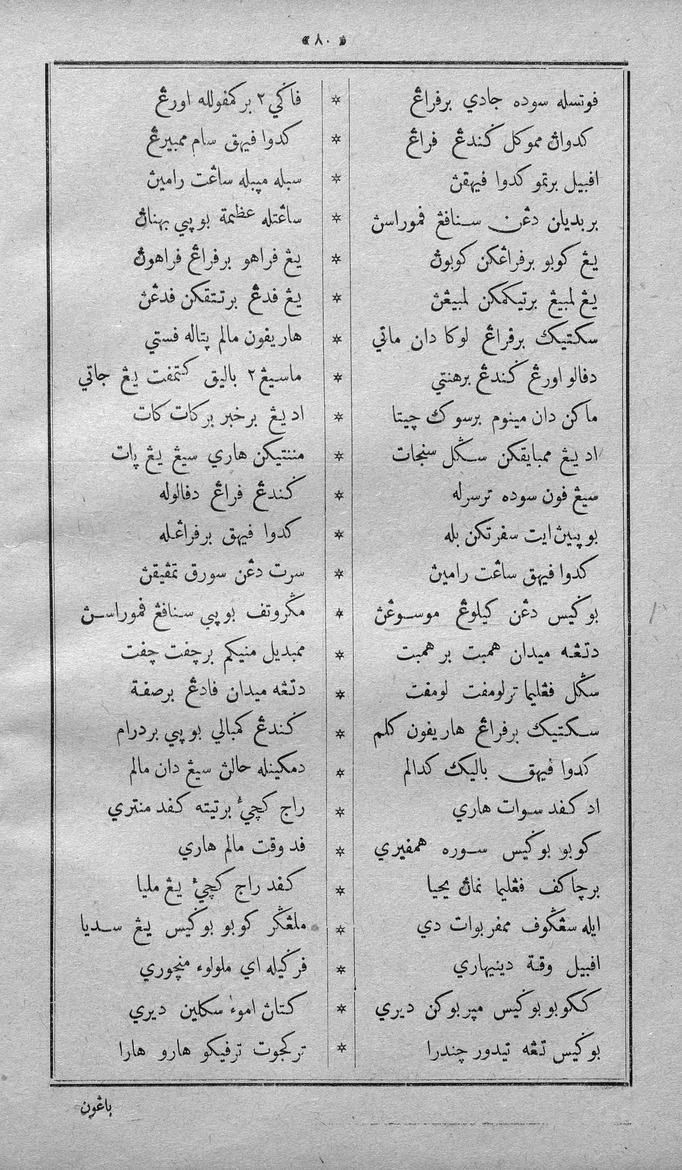 « ٨٠ »
فوتسله سوده جادي برفراڠ * فاݢي٢ برکمفولله اورڠ
کدواڽ مموکل ݢندڠ فراڠ * کدوا فيهق سام ممبيرڠ
افبيل برتمو کدوا فيهقڽ * سبله مڽبله ساڠت رامين
بربديلن دڠن سنافڠ فموراسن * ساڠتله عظيمة بوڽي بهناڽ
يڠ کوبو برفراڠکن کوبوڽ * يڠ فراهو برفراڠ فراهوڽ
يڠ لمبيڠ برتيکمکن لمبيڠڽ * يڠ فدڠ برتتقکن فدڠڽ
سکتيک برفراڠ لوکا دان ماتي * هاريفون مالم ڽتاله فستي
دفالو اورڠ ݢندڠ برهنتي * ماسيڠ٢ باليق کتمفت يڠ جاتي
ماکن دان مينوم برسوک چيتا * اديڠ برخبر برکات کات
اديڠ ممبايقکن سݢل سنجات * مننتيکن هاري سيڠ يڠ ڽات
سيڠ فون سوده ترسرله * ݢندڠ فراڠ دفالوله
بوڽين ايت سفرتکن بله * کدوا فيهق برفراڠله
کدوا فيهق ساڠت رامين * سرت دڠن سورق تمڤيقڽ
بوݢيس دڠن کيلوڠ موسوڠڽ * مݢروتف بوڽي سنافڠ فموراسن
دتڠه ميدان همبت برهمبت * ممبديل منيکم برچفت چفت
سݢل فڠليما ترلومفت لومفت * دتڠه ميدان فادڠ برصفة
سکتيک برفراڠ هاريفون کلم * ݢندڠ کمبالي بوڽي بردرام
کدوا فيهق باليک کدالم * دمکينله حالڽ سيڠ دان مالم
اد کفد سوات هاري * راج کچيٴ برتيته کفد منتري
کوبو بوݢيس سوره همفيري * فد وقت مالم هاري
برچاکف فڠليما نماڽ يحيا * کفد راج کچيٴ يڠ مليا
ايله سڠݢوف ممفربوات دي * ملڠݢر کوبو بوݢيس يڠ سديا
افبيل وقة دينيهاري * فرݢيله اي ملولوء منچوري
ککوبو بوݢيس مڽربوکن ديري * کتاڽ اموء سکلين ديري
بوݢيس تڠه تيدور چندرا * ترکجوت ترفيکو هارو هارا
باڠون